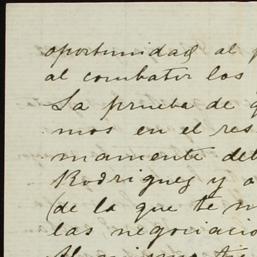 oportunidad al
al combatir los
La prueba de
mos en el res
mamente de
Rodriguez y a
(de la que te
las negociacio